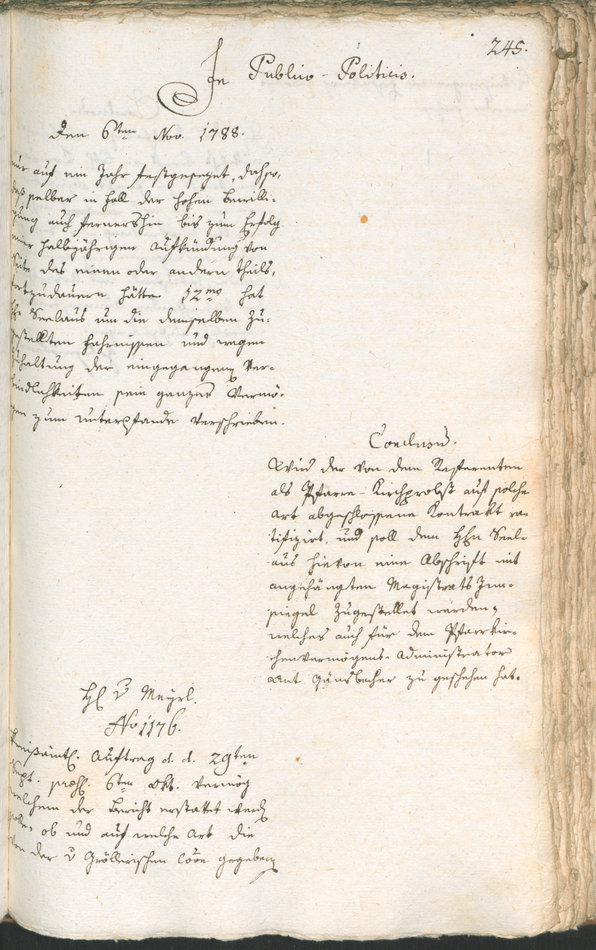 245.
In Publico-Politicis.
Den 6ten Nov. 1788.
nur auf ein Jahr festgesezet, dahso,
daß selber in fall der hohen Bewilli-
gung auch fernershin bis zum Erfolg
einer halbjährigen Aufkündung von
Seite des einen oder andern theils,
fortzudauern hätte. 12mo hat
Hr Seelaus um die demselben Zu-
gestellten fahrnissen und wegen
Zuhaltung der eingegangenen Ver-
bindlichkeiten sein ganzes Vermö-
gen zum unterpfande verschrieben.
Conclusum.
Wird der von dem Referenten
als Pfarr-Kirchprobst auf solche
Art abgeschlossene Kontrakt ra-
tifizirt, und soll dem Hhn Seel-
aus hievon eine Abschrift mit
angehängten Magistrats Inn-
siegel zugestellet werden,
welches auch für dem Pfarrkir-
chenvermögens-Administrator
Ant Gänsbacher zu geschehen hat.
H v Mayrl.
No 1176.
Kreisämtl. Auftrag d. d. 29ten
Sept. praes. 6ten Okt. vermög
welchem der Bericht erstattet werden
solle, ob und auf welche Art die
der v Gröllerischen gegeben